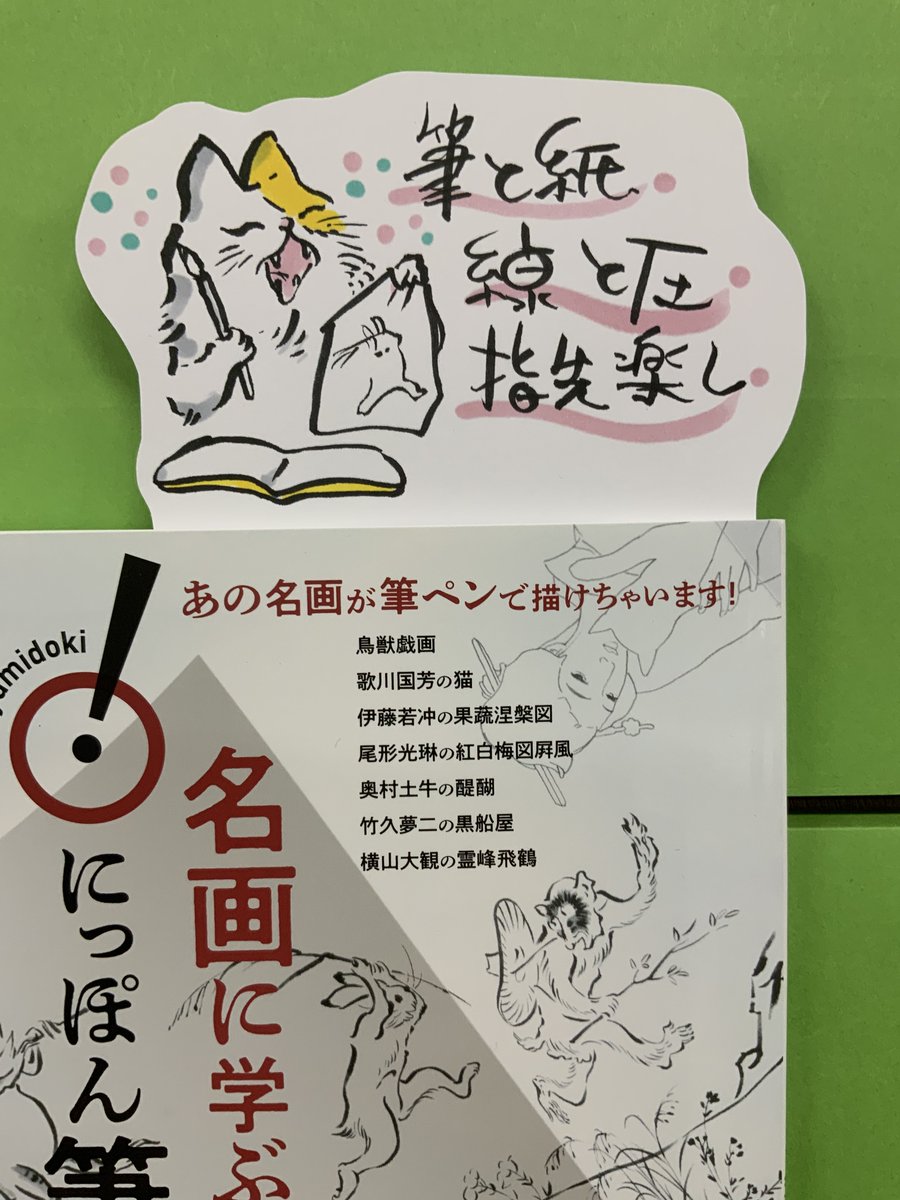 筆と紙
線と圧
指先楽し
あの名画が筆ペンで描けちゃいます!
鳥獣戯画
歌川国芳の猫
伊藤若冲の果蔬涅槃図
尾形光琳の紅白梅図屛風
奥村土牛の醍醐
竹久夢二の黒船屋
横山大観の霊峰飛鶴
umidoki
名画に学ぶ
にっぽん筆